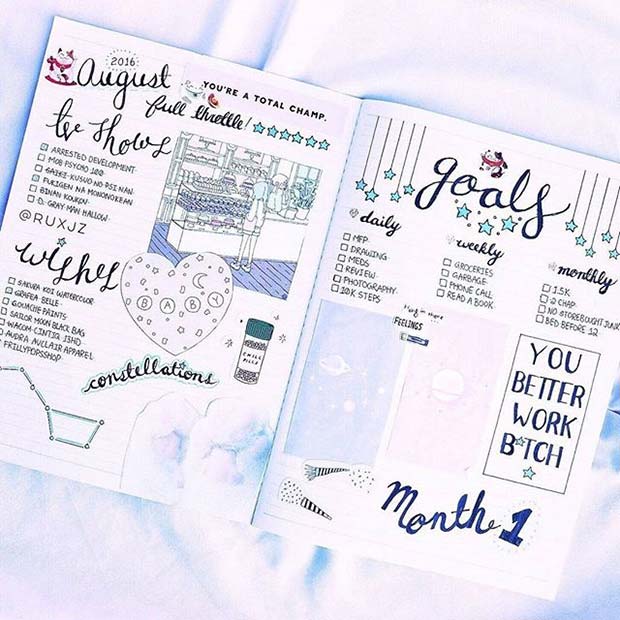 2016
August
YOU'RE A TOTAL CHAMP.
full throttle!
tv shows
ARRESTED DEVELOPMENT
MOB PSYCHO 100
SAIKI KUSUO NO PSI NAN
FUKIGEN NA MONONOKEAN
BINAN KOUKOU
D. GRAY-MAN HALLOW
@RUXJZ
wishes
SAKURA KOI WATERCOLOR
GRAFEA BELLE
GOUACHE PAINTS
SAILOR MOON BLACK BAG
WACOM CINTIQ 13HD
AUDRA AUCLAIR APPAREL
FRILLYPOPSSHOP
BABY
CHILL PILLS
constellations
goals
daily
MFP
DRAWING
MEDS
REVIEW
PHOTOGRAPHY
10K STEPS
weekly
GROCERIES
GARBAGE
PHONE CALL
READ A BOOK
monthly
1.5K
2 CHAP.
NO STOREBOUGHT JUNK
BED BEFORE 12
FEELINGS
YOU
BETTER
WORK
B TCH
Month 1